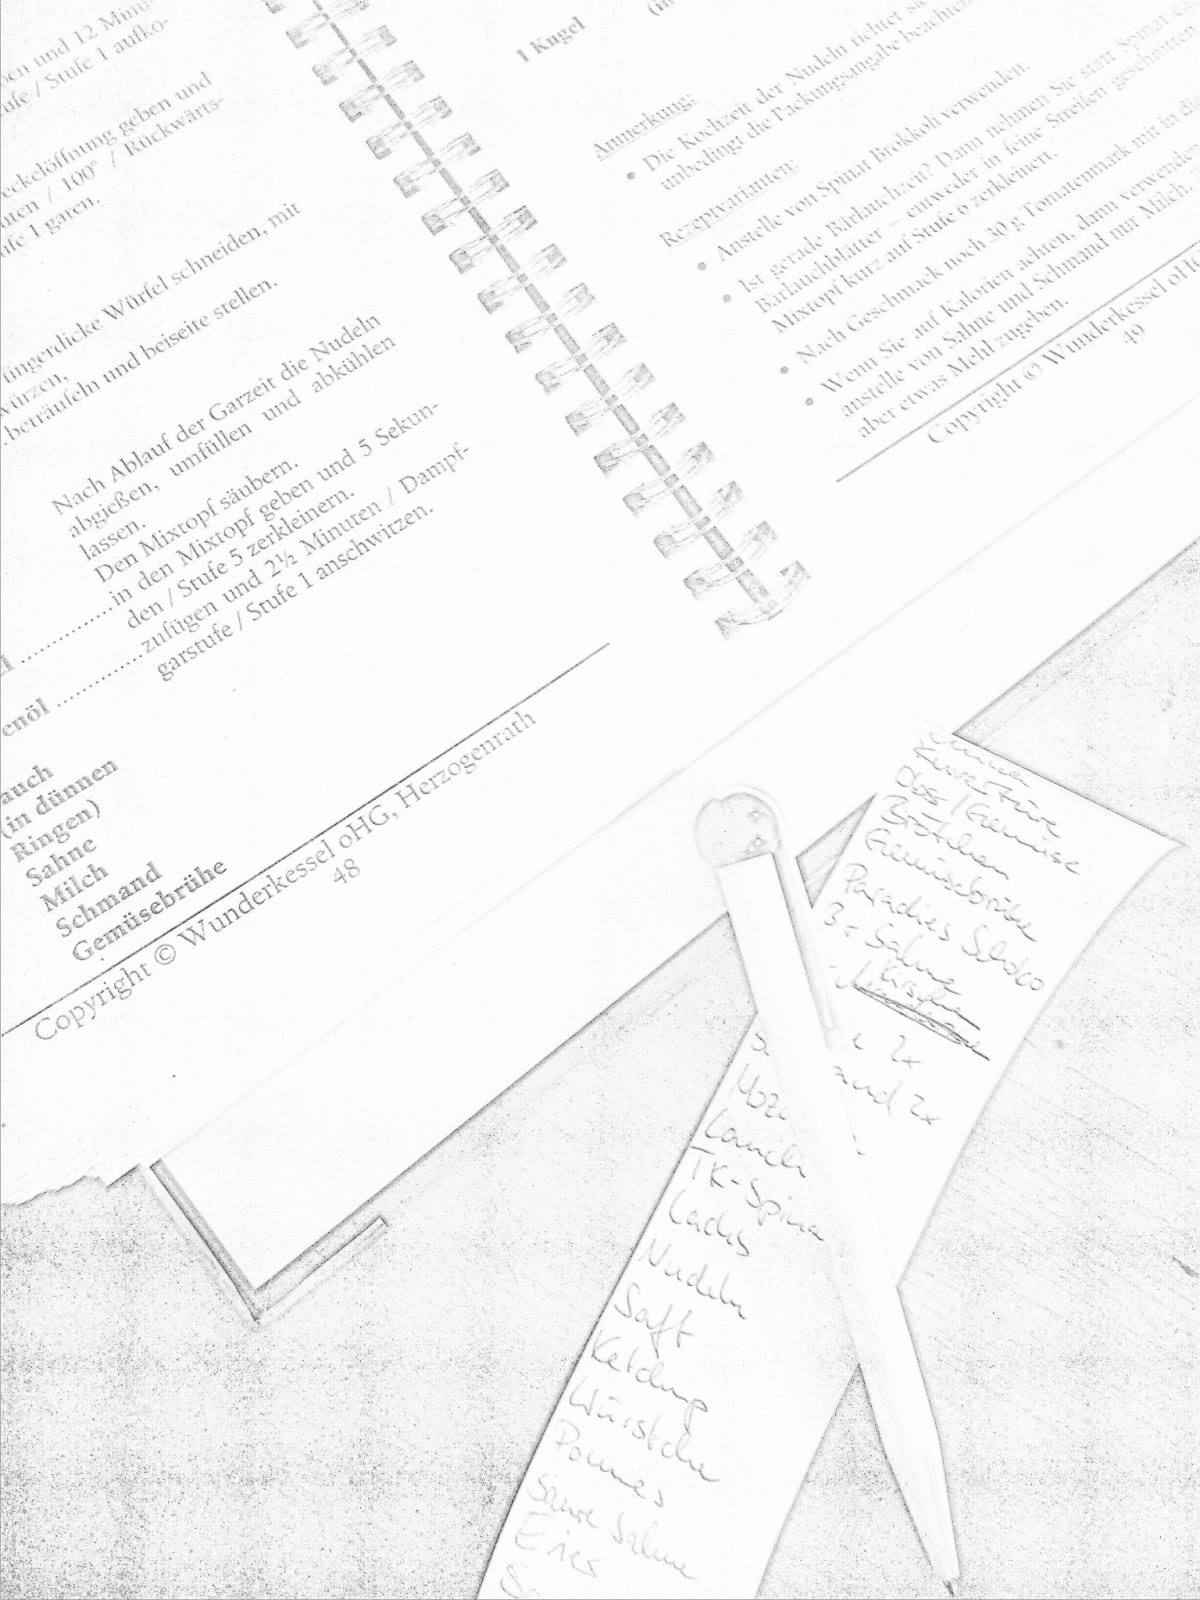 en und 12 Minu-
ufe / Stufe 1 aufko-
eckelöffnung geben und
uten / 100° / Rückwärts-
ufe 1 garen.
fingerdicke Würfel schneiden, mit
würzen,
beträufeln und beiseite stellen.
Nach Ablauf der Garzeit die Nudeln
abgießen, umfüllen und abkühlen
lassen.
Den Mixtopf säubern.
in den Mixtopf geben und 5 Sekun-
den / Stufe 5 zerkleinern.
enöl ............zufügen und 2½ Minuten / Dampf-
garstufe / Stufe 1 anschwitzen.
auch
(in dünnen
Ringen)
Sahne
Milch
Schmand
Gemüsebrühe
Copyright © Wunderkessel oHG, Herzogenrath
48
1 Kugel
Anmerkung:
• Die Kochzeit der Nudeln richtet
unbedingt die Packungsangabe beachten
Rezeptvarianten:
• Anstelle von Spinat Brokkoli verwenden.
• Ist gerade Bärlauchzeit? Dann nehmen Sie statt Spinat
Bärlauchblätter – entweder in feine Streifen geschnitten
Mixtopf kurz auf Stufe 6 zerkleinen.
• Nach Geschmack noch 30 g Tomatenmark mit in d
• Wenn Sie auf Kalorien achten, dann verwenden
anstelle von Sahne und Schmand nur Milch,
aber etwas Mehl zugeben.
Copyright © Wunderkessel oHG
49
Kuvertüre
Obst/Gemüse
Brötchen
Gemüsebrühe
Paradies Schoko
3x Sahne
Kirsche
2x
and 2x
Moz
Lauch
TK-Spina
Lachs
Nudeln
Saft
Ketchup
Würstche
Pommes
Saure Sahne
Eier